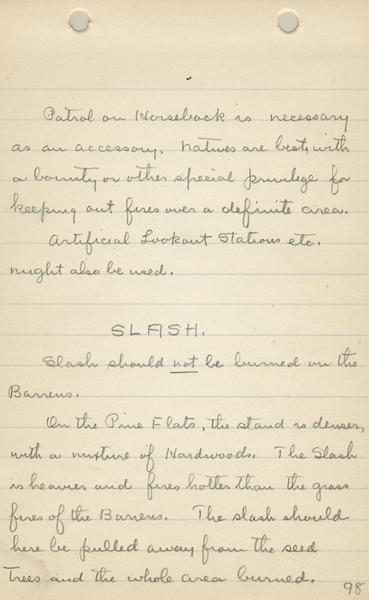 Patrol on Horseback is necessary
as an accessory. Natives are best, with
a bounty or other special privilege for
keeping out fires over a definite area.
Artificial Lookout Stations etc.
might also be used.
SLASH.
Slash should not be burned on the
Barrens.
On the Pine Flats, the stand is denser,
with a mixture of Hardwoods. The Slash
is heavier and fires hotter than the grass
fires of the Barrens. The slash should
here be pulled away from the seed
trees and the whole area burned.
98